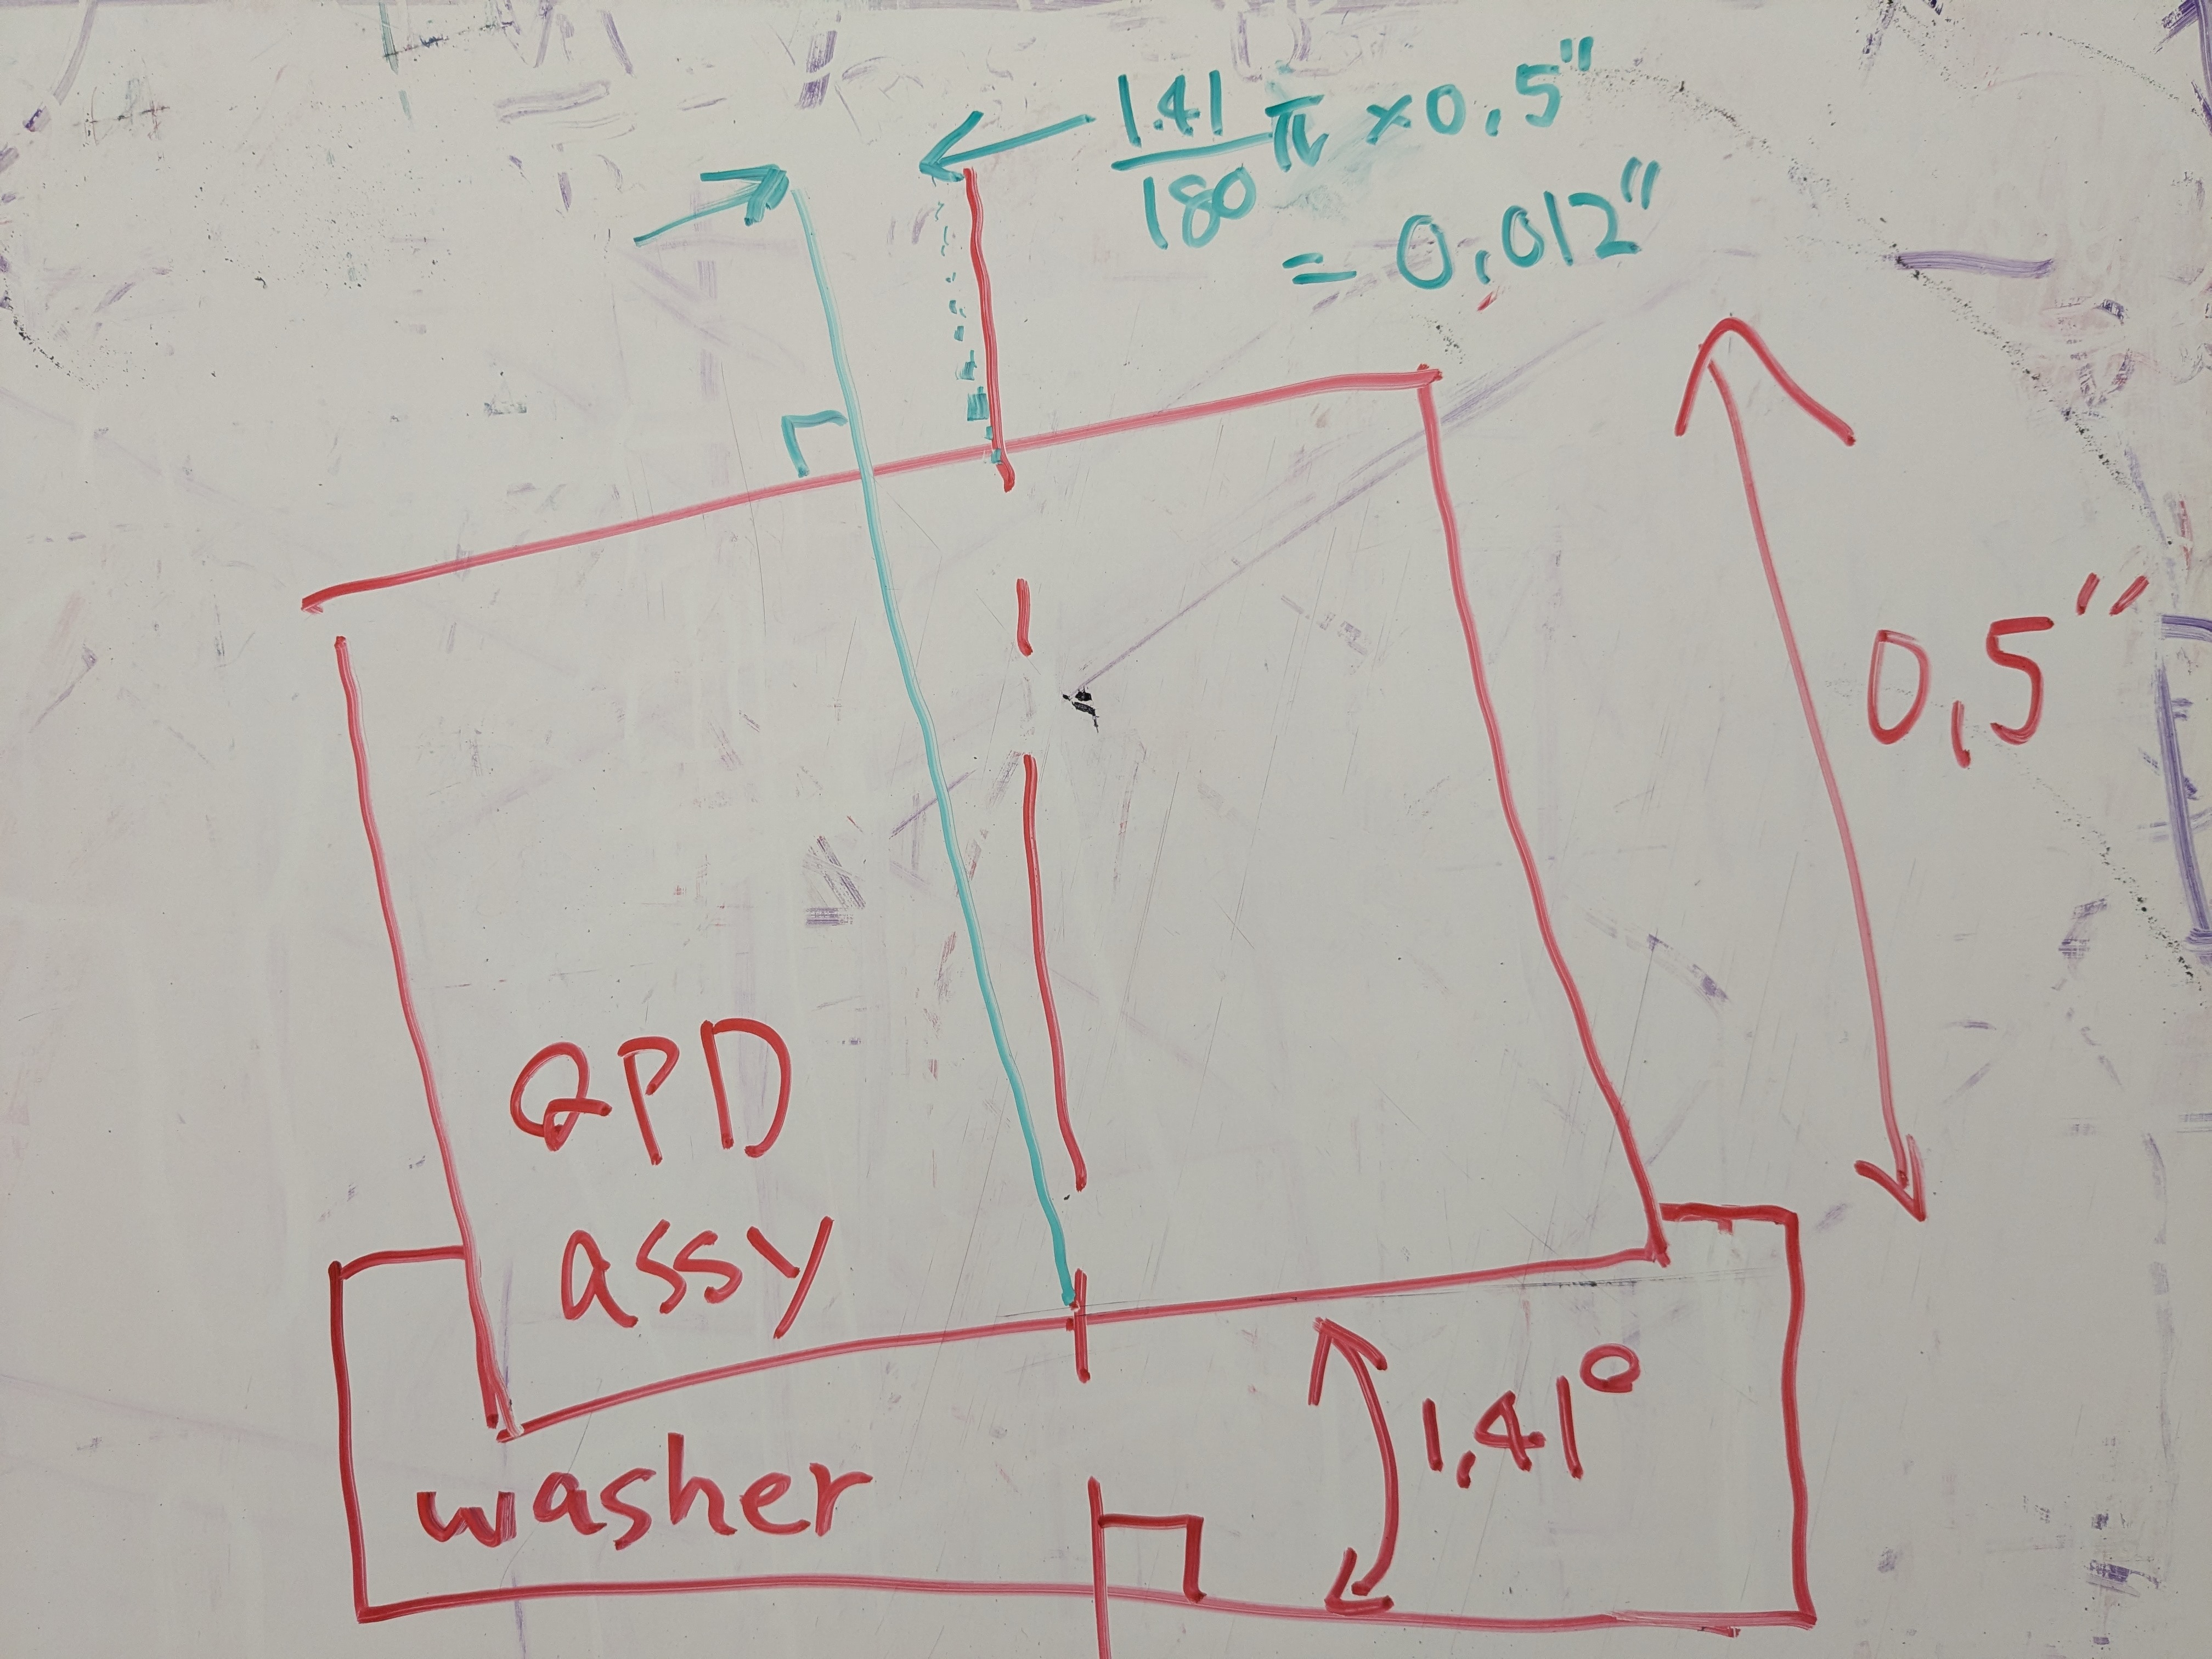 1.41/180 π × 0.5"
= 0.012"
0.5"
QPD
assy
1.41°
washer